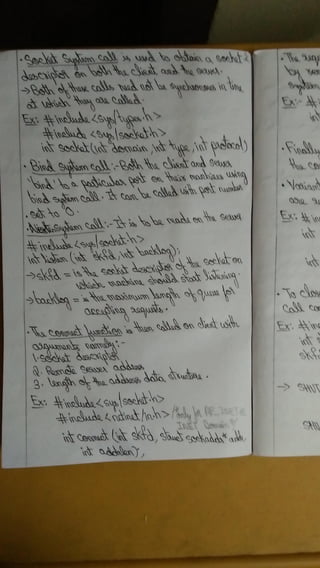 • Socket System call is used to obtain a socket
descriptor on both the client and the server.
→ Both of these calls need not be synchronous in time
at which they are called.
Ex: #include <sys/types.h>
#include <sys/socket.h>
int socket (int domain, int type, int protocol)
• Bind System call :- Both the client and server
'bind' to a particular port on their machines using
bind system call. It can be called with port number
• set to 0.
system call :- It is to be made on the server
#include <sys/socket.h>
int listen (int skfd, int backlog);
→ skfd = is the socket descriptor of the socket on
which machine should start listening.
→ backlog = is the maximum length of queue for
accepting requests.
• The connect function is then called on client with
arguments namely:-
1. socket descriptor
2. Remote server address
3. length of the address data structure.
Ex: #include <sys/socket.h>
#include <netinet/in.h> /*only for AF_INET
INET Domain*/
int connect (int skfd, struct sockaddr* addr,
int addrlen);
• The
by
system
Ex:- #
int
• Finally
the co
• Varian
are
Ex: # in
int
int
• To clos
call co
Ex: #in
int s
skf
→ SHUT
SHU